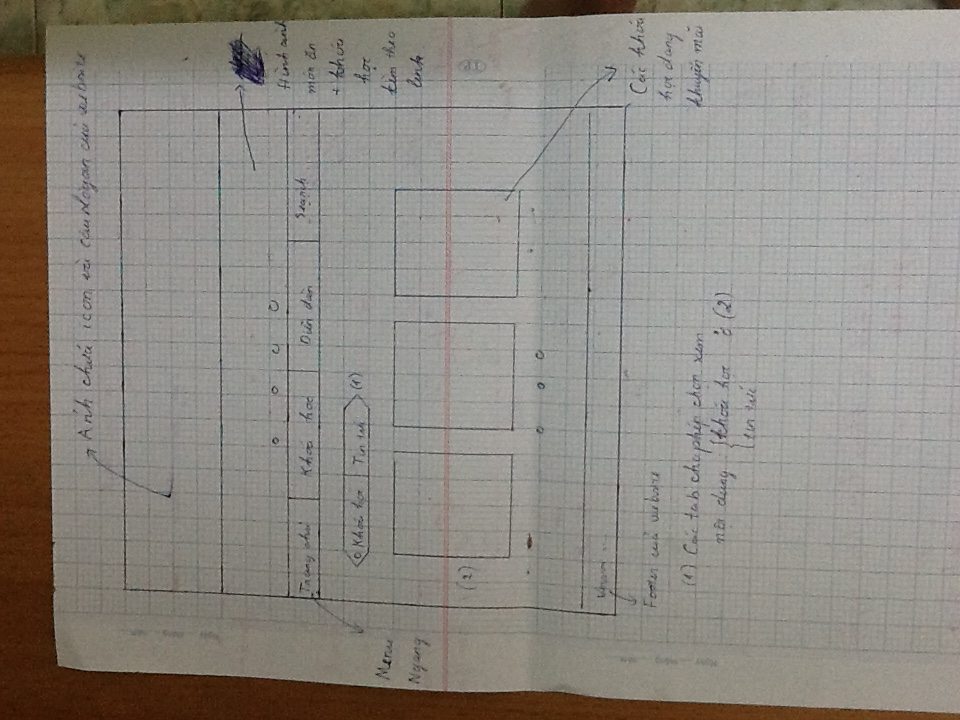 Ảnh chứa icon và câu slogan của website
Hình ảnh
món ăn
+ khóa
học
kèm theo
link
Trang chủ
Khóa học
Diễn đàn
Search
Khóa học
Tin tức
(1)
(2)
Các khóa
học đang
khuyến mãi
Menu
Ngang
Footer của website
(1) Các tab cho phép chọn xem
nội dung { khóa học ở (2)
tin tức